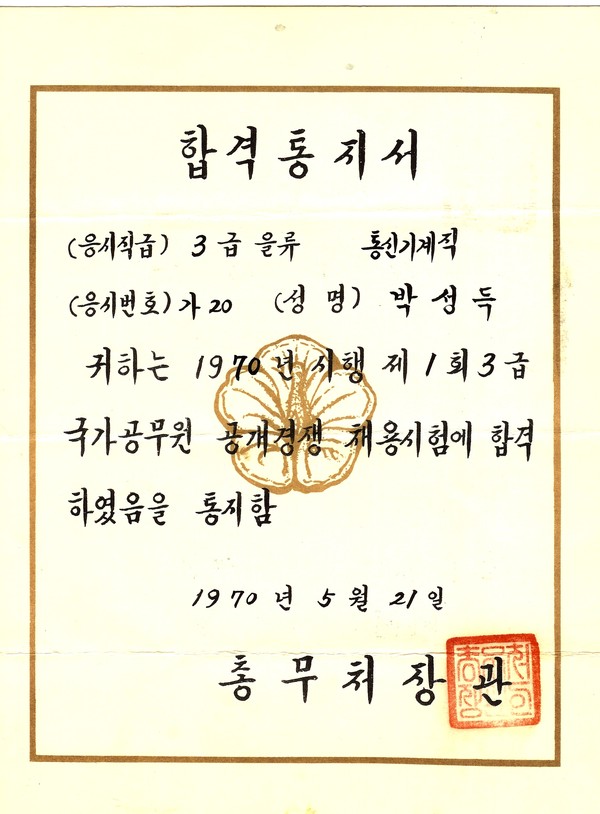 합격통지서
(응시직급) 3급 을류 통신기계직
(응시번호) 가20 (성 명) 박성득
귀하는 1970년 시행 제1회3급
국가공무원 공개경쟁 채용시험에 합격
하였음을 통지함
1970년 5월 21일
총무처장관